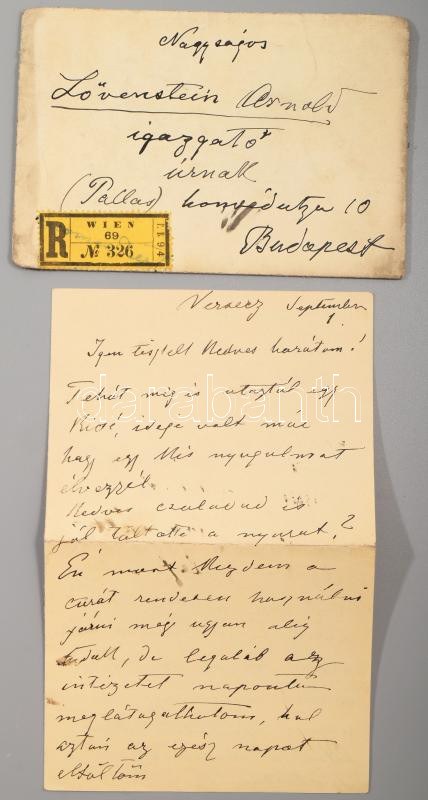 Nagyságos
Lövenstein Arnold
igazgató
úrnak
(Pallas) honvédutza 10
Budapest
R
WIEN
69
№ 326
Versecz September
1.
Igen tisztelt Kedves barátom!
Tehát mégis utaztál egy
kicsé, ideje volt már
hogy egy kis nyugalmat
élvezzél.
Kedves családod is
jól töltötte a nyarat?
Én most kezdem a
curát rendesen használni
járni még ugyan alig
tudok, de legaláb az
intézetet naponta
meglátogathatom, hol
aztán az egész napot
eltöltöm
darabanth